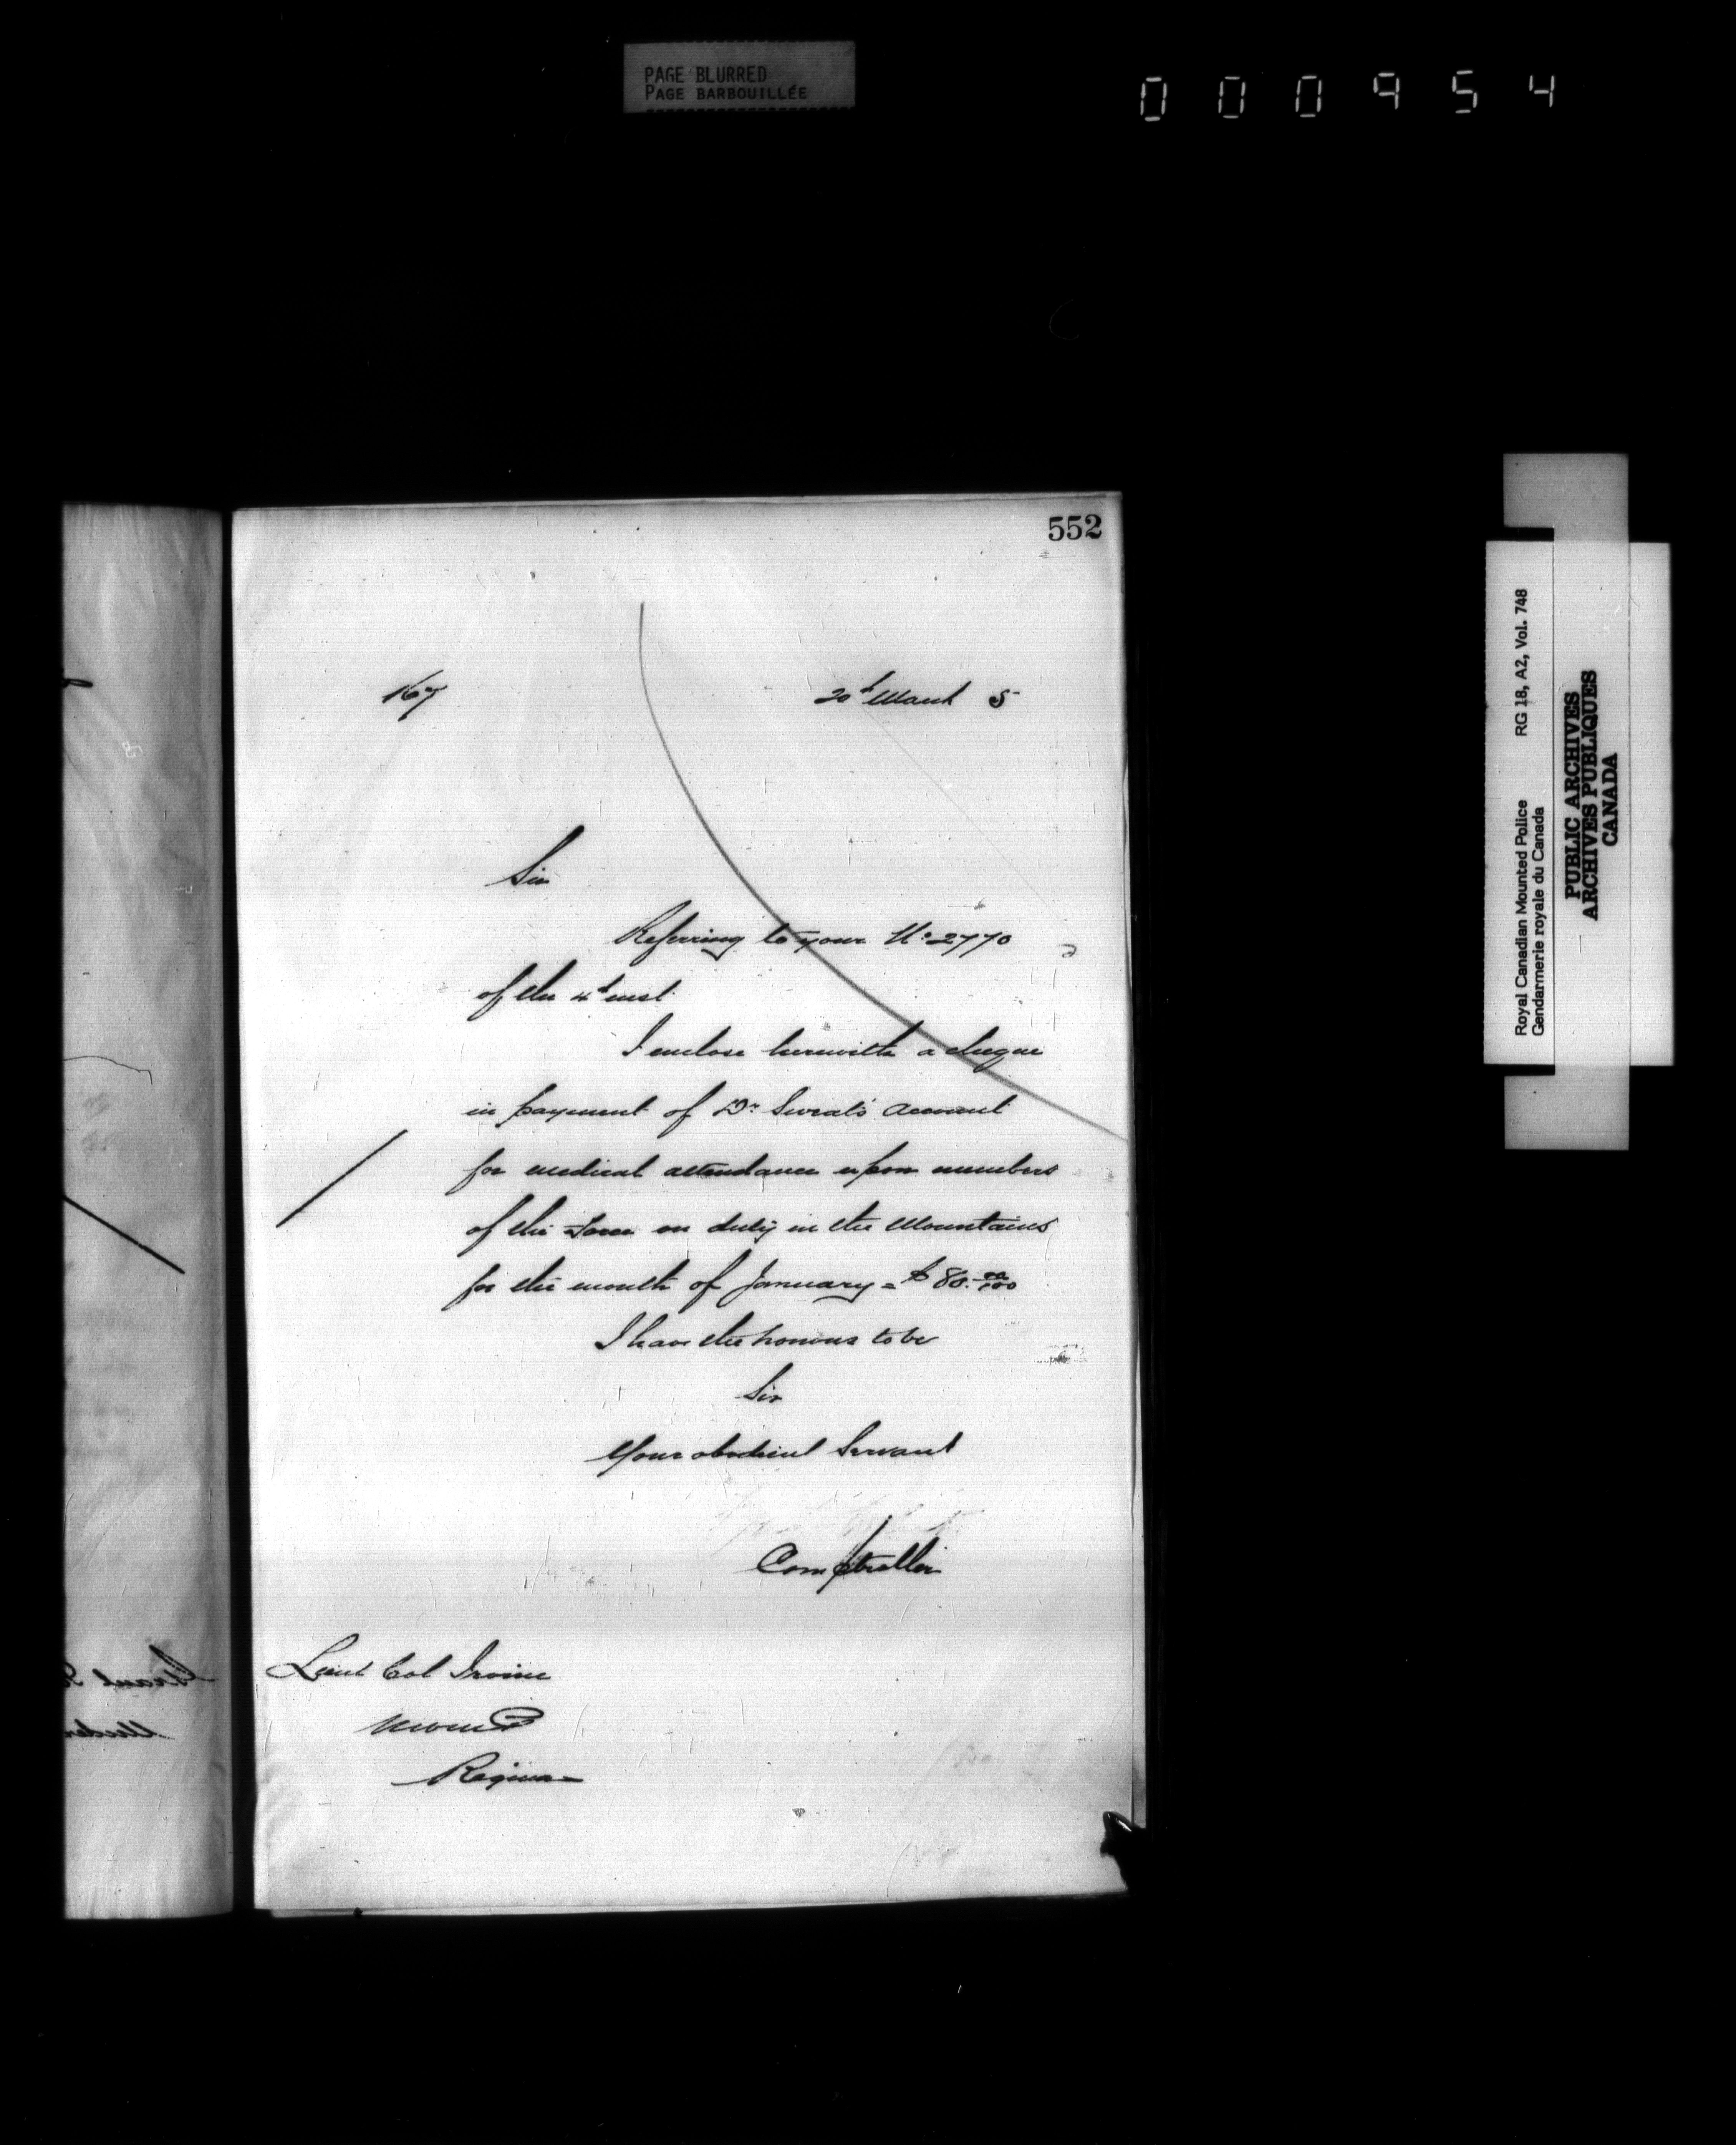 PAGE BLURRED
PAGE BARBOUILLÉE
000954
552
167
20th March 5
Sir
Referring to your No 2770
of the 4th inst.
I enclose herewith a cheque
in payment of Dr account
for medical attendance upon members
of the Force on duty in the Mountains
for the month of January = $80.00/100
I have the honour to be
Sir
Your obedient Servant
Comptroller
Lieut Col Irvine
NWMP
Regina
Royal Canadian Mounted Police RG 18, A2, Vol. 748
Gendarmerie royale du Canada
PUBLIC ARCHIVES
ARCHIVES PUBLIQUES
CANADA